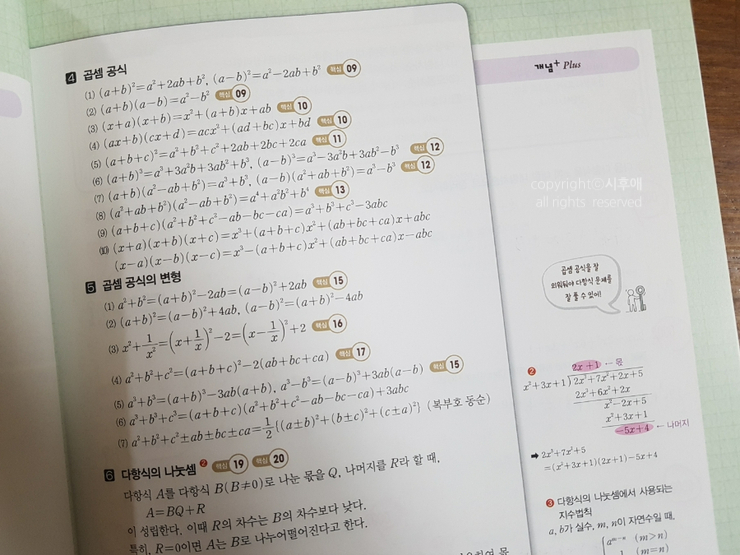 4 곱셈 공식
(1) (a+b)²=a²+2ab+b², (a-b)²=a²-2ab+b² 핵심 09
(2) (a+b)(a-b)=a²-b² 핵심 09
(3) (x+a)(x+b)=x²+(a+b)x+ab 핵심 10
(4) (ax+b)(cx+d)=acx²+(ad+bc)x+bd 핵심 10
(5) (a+b+c)²=a²+b²+c²+2ab+2bc+2ca 핵심 11
(6) (a+b)³=a³+3a²b+3ab²+b³, (a-b)³=a³-3a²b+3ab²-b³ 핵심 12
(7) (a+b)(a²-ab+b²)=a³+b³, (a-b)(a²+ab+b²)=a³-b³ 핵심 12
(8) (a²+ab+b²)(a²-ab+b²)=a⁴+a²b²+b⁴ 핵심 13
(9) (a+b+c)(a²+b²+c²-ab-bc-ca)=a³+b³+c³-3abc
(10) (x+a)(x+b)(x+c)=x³+(a+b+c)x²+(ab+bc+ca)x+abc
(x-a)(x-b)(x-c)=x³-(a+b+c)x²+(ab+bc+ca)x-abc
5 곱셈 공식의 변형
(1) a²+b²=(a+b)²-2ab=(a-b)²+2ab 핵심 15
(2) (a+b)²=(a-b)²+4ab, (a-b)²=(a+b)²-4ab
(3) x²+1/x²=(x+1/x)²-2=(x-1/x)²+2 핵심 16
(4) a²+b²+c²=(a+b+c)²-2(ab+bc+ca) 핵심 17
(5) a³+b³=(a+b)³-3ab(a+b), a³-b³=(a-b)³+3ab(a-b) 핵심 15
(6) a³+b³+c³=(a+b+c)(a²+b²+c²-ab-bc-ca)+3abc
(7) a²+b²+c²±ab±bc±ca=1/2{(a±b)²+(b±c)²+(c±a)²} (복부호 동순)
6 다항식의 나눗셈 2 핵심 19 핵심 20
다항식 A를 다항식 B(B≠0)로 나눈 몫을 Q, 나머지를 R라 할 때,
A=BQ+R
이 성립한다. 이때 R의 차수는 B의 차수보다 낮다.
특히, R=0이면 A는 B로 나누어떨어진다고 한다.
개념+ Plus
copyright ⓒ 시후애
all rights reserved
곱셈 공식을 잘
외워둬야 다항식 문제를
잘 풀 수 있어!
2
2x+1 ← 몫
x²+3x+1)2x³+7x²+2x+5
2x³+6x²+2x
x²-2x+5
x²+3x+1
-5x+4 ← 나머지
➡ 2x³+7x²+5
=(x²+3x+1)(2x+1)-5x+4
3 다항식의 나눗셈에서 사용되는
지수법칙
a, b가 실수, m, n이 자연수일 때,
aᵐ⁻ⁿ (m>n)
(m=n)